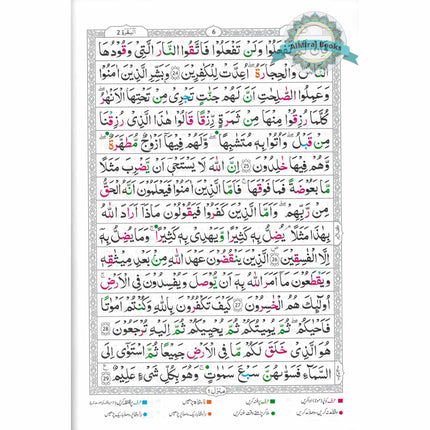 AlMiraj Books
البقرۃ 2
6
تَفۡعَلُوۡا وَلَنۡ تَفۡعَلُوۡا فَاتَّقُوا النَّارَ الَّتِىۡ وَقُوۡدُهَا
النَّاسُ وَالۡحِجَارَةُ ۖۚ اُعِدَّتۡ لِلۡكٰفِرِيۡنَ 24 وَبَشِّرِ الَّذِيۡنَ اٰمَنُوۡا
وَعَمِلُوا الصّٰلِحٰتِ اَنَّ لَهُمۡ جَنّٰتٍ تَجۡرِىۡ مِنۡ تَحۡتِهَا الۡاَنۡهٰرُ ؕ
كُلَّمَا رُزِقُوۡا مِنۡهَا مِنۡ ثَمَرَةٍ رِّزۡقًا ۙ قَالُوۡا هٰذَا الَّذِىۡ رُزِقۡنَا
مِنۡ قَبۡلُ ۙ وَاُتُوۡا بِهٖ مُتَشَابِهًا ؕ وَلَهُمۡ فِيۡهَآ اَزۡوَاجٌ مُّطَهَّرَةٌ ۙ
وَّهُمۡ فِيۡهَا خٰلِدُوۡنَ 25 اِنَّ اللّٰهَ لَا يَسۡتَحۡىٖۤ اَنۡ يَّضۡرِبَ مَثَلًا
مَّا بَعُوۡضَةً فَمَا فَوۡقَهَا ؕ فَاَمَّا الَّذِيۡنَ اٰمَنُوۡا فَيَعۡلَمُوۡنَ اَنَّهُ الۡحَقُّ
مِنۡ رَّبِّهِمۡ ۚ وَاَمَّا الَّذِيۡنَ كَفَرُوۡا فَيَقُوۡلُوۡنَ مَاذَآ اَرَادَ اللّٰهُ
بِهٰذَا مَثَلًا ۘ يُضِلُّ بِهٖ كَثِيۡرًا ۙ وَّيَهۡدِىۡ بِهٖ كَثِيۡرًا ؕ وَمَا يُضِلُّ بِهٖۤ
اِلَّا الۡفٰسِقِيۡنَ 26 الَّذِيۡنَ يَنۡقُضُوۡنَ عَهۡدَ اللّٰهِ مِنۡۢ بَعۡدِ مِيۡثَاقِهٖ ۪
وَيَقۡطَعُوۡنَ مَآ اَمَرَ اللّٰهُ بِهٖۤ اَنۡ يُّوۡصَلَ وَيُفۡسِدُوۡنَ فِى الۡاَرۡضِ ؕ
اُولٰٓئِكَ هُمُ الۡخٰسِرُوۡنَ 27 كَيۡفَ تَكۡفُرُوۡنَ بِاللّٰهِ وَكُنۡتُمۡ اَمۡوَاتًا
فَاَحۡيَاكُمۡ ۚ ثُمَّ يُمِيۡتُكُمۡ ثُمَّ يُحۡيِيۡكُمۡ ثُمَّ اِلَيۡهِ تُرۡجَعُوۡنَ 28
هُوَ الَّذِىۡ خَلَقَ لَكُمۡ مَّا فِى الۡاَرۡضِ جَمِيۡعًا ۗ ثُمَّ اسۡتَوٰٓى اِلَى
السَّمَآءِ فَسَوّٰٮهُنَّ سَبۡعَ سَمٰوٰتٍ ؕ وَهُوَ بِكُلِّ شَىۡءٍ عَلِيۡمٌ 29
منزل ١